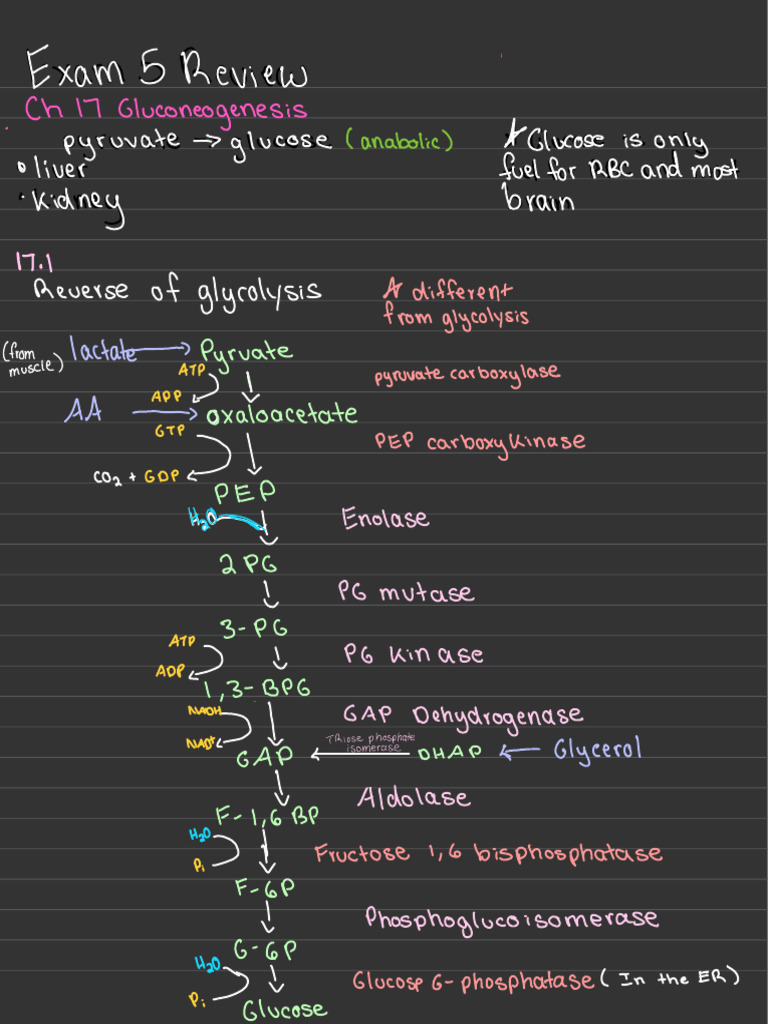 Exam 5 Review
Ch 17 Gluconeogenesis
pyruvate → glucose (anabolic)
• liver
• Kidney
* Glucose is only
fuel for RBC and most
brain
17.1
Reverse of glycolysis
* different
from glycolysis
(from
muscle)
lactate → Pyruvate
ATP
ADP
pyruvate carboxylase
AA → oxaloacetate
GTP
CO2 + GDP
PEP carboxykinase
PEP
H2O
Enolase
2 PG
PG mutase
3-PG
ATP
ADP
PG kinase
1,3-BPG
NADH
NAD+
GAP Dehydrogenase
GAP ← Triose phosphate
isomerase
DHAP ← Glycerol
Aldolase
F-1,6 BP
H2O
Pi
Fructose 1,6 bisphosphatase
F-6P
Phosphoglucoisomerase
G-6P
H2O
Pi
Glucose 6-phosphatase (In the ER)
Glucose